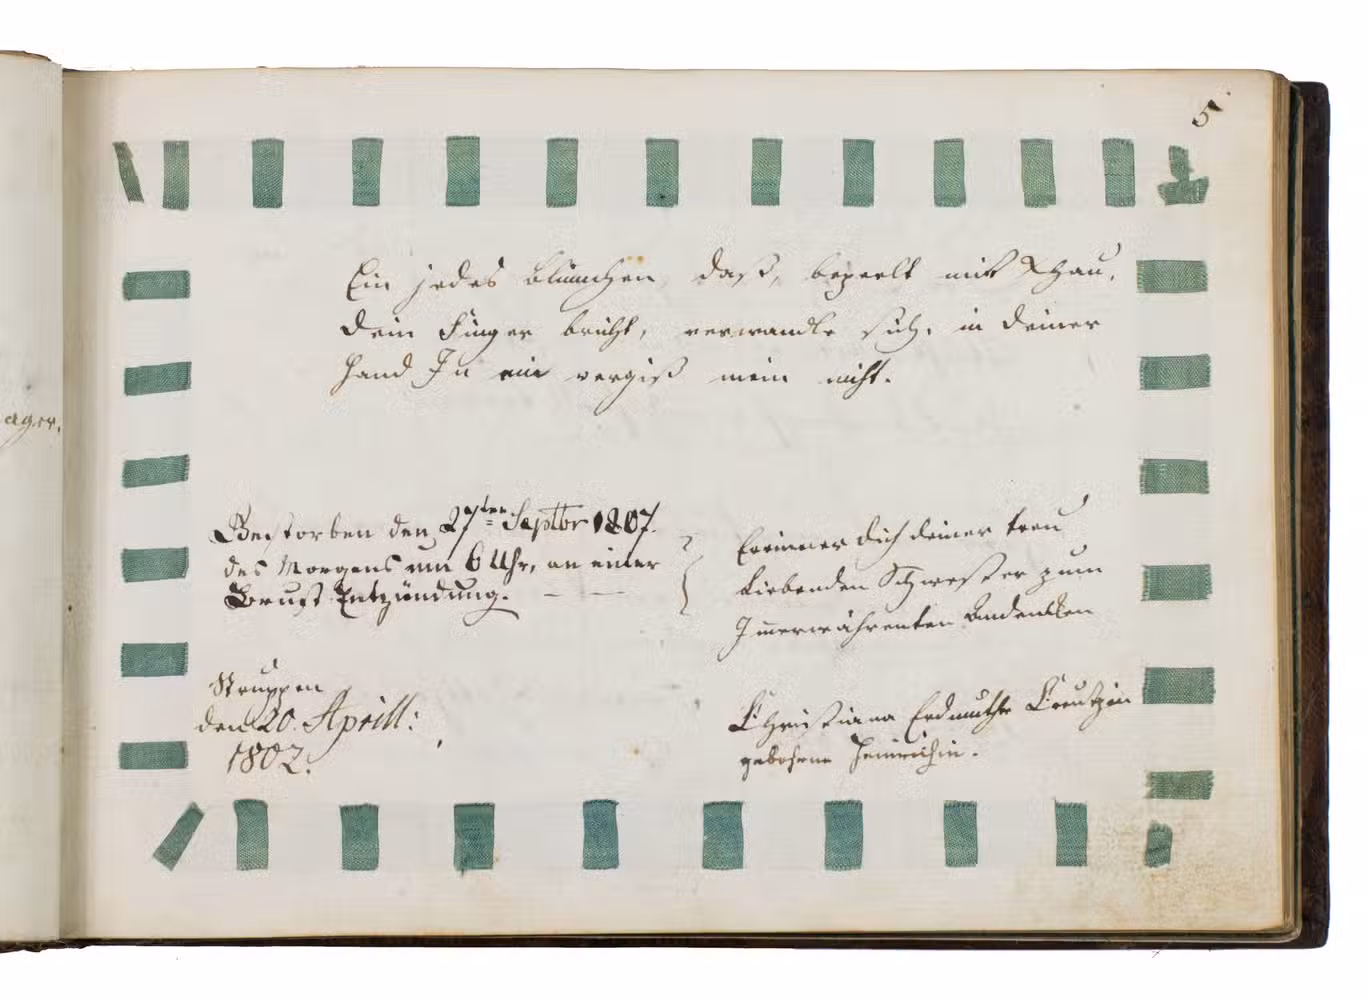 5
ager.
Ein jedes Blümchen, daß, beperlt mit Thau,
Dein Finger bricht, verwandle sich, in deiner
Hand In ein vergiß mein nicht.
Gestorben den 27ten Septbr 1807.
des Morgens um 6 Uhr, an einer
Brust Entzündung. — —
Erinner dich deiner treu
liebenden Schwester zum
Immerwährenten Andencken
Struppen
den 20. Aprill:
1802.
Christiana Erdmuthe Creutzin
gebohrne Heinrichin.